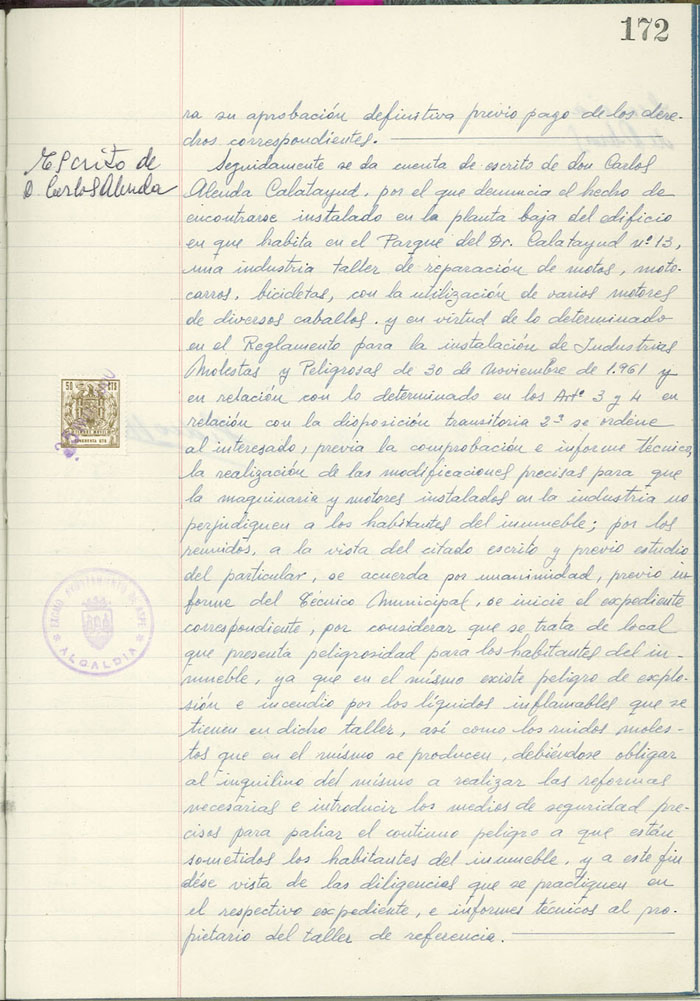 172
ra su aprobación definitiva previo pago de los dere-
chos correspondientes.
Escrito de
D. Carlos Alenda
Seguidamente se da cuenta de escrito de don Carlos
Alenda Calatayud, por el que denuncia el hecho de
encontrarse instalado en la planta baja del edificio
en que habita en el Parque del Dr. Calatayud nº 13,
una industria taller de reparación de motos, moto-
carros, bicicletas, con la utilización de varios motores
de diversos caballos, y en virtud de lo determinado
en el Reglamento para la instalación de Industrias
Molestas y Peligrosas de 30 de Noviembre de 1.961 y
en relación con lo determinado en los Artº 3 y 4 en
relación con la disposición transitoria 2ª se ordene
al interesado, previa la comprobación e informe técnico,
la realización de las modificaciones precisas para que
la maquinaria y motores instalados en la industria no
perjudiquen a los habitantes del inmueble; por los
reunidos, a la vista del citado escrito y previo estudio
del particular, se acuerda por unanimidad, previo in-
forme del Técnico Municipal, se inicie el expediente
correspondiente, por considerar que se trata de local
que presenta peligrosidad para los habitantes del in-
mueble, ya que en el mismo existe peligro de explo-
sión e incendio por los líquidos inflamables que se
tienen en dicho taller, así como los ruidos moles-
tos que en el mismo se producen, debiéndose obligar
al inquilino del mismo a realizar las reformas
necesarias e introducir los medios de seguridad pre-
cisos para paliar el continuo peligro a que están
sometidos los habitantes del inmueble, y a este fin
dése vista de las diligencias que se practiquen en
el respectivo expediente, e informes técnicos al pro-
pietario del taller de referencia.
50 CTS
AYUNTAMIENTO DE ASPE
ALCALDIA